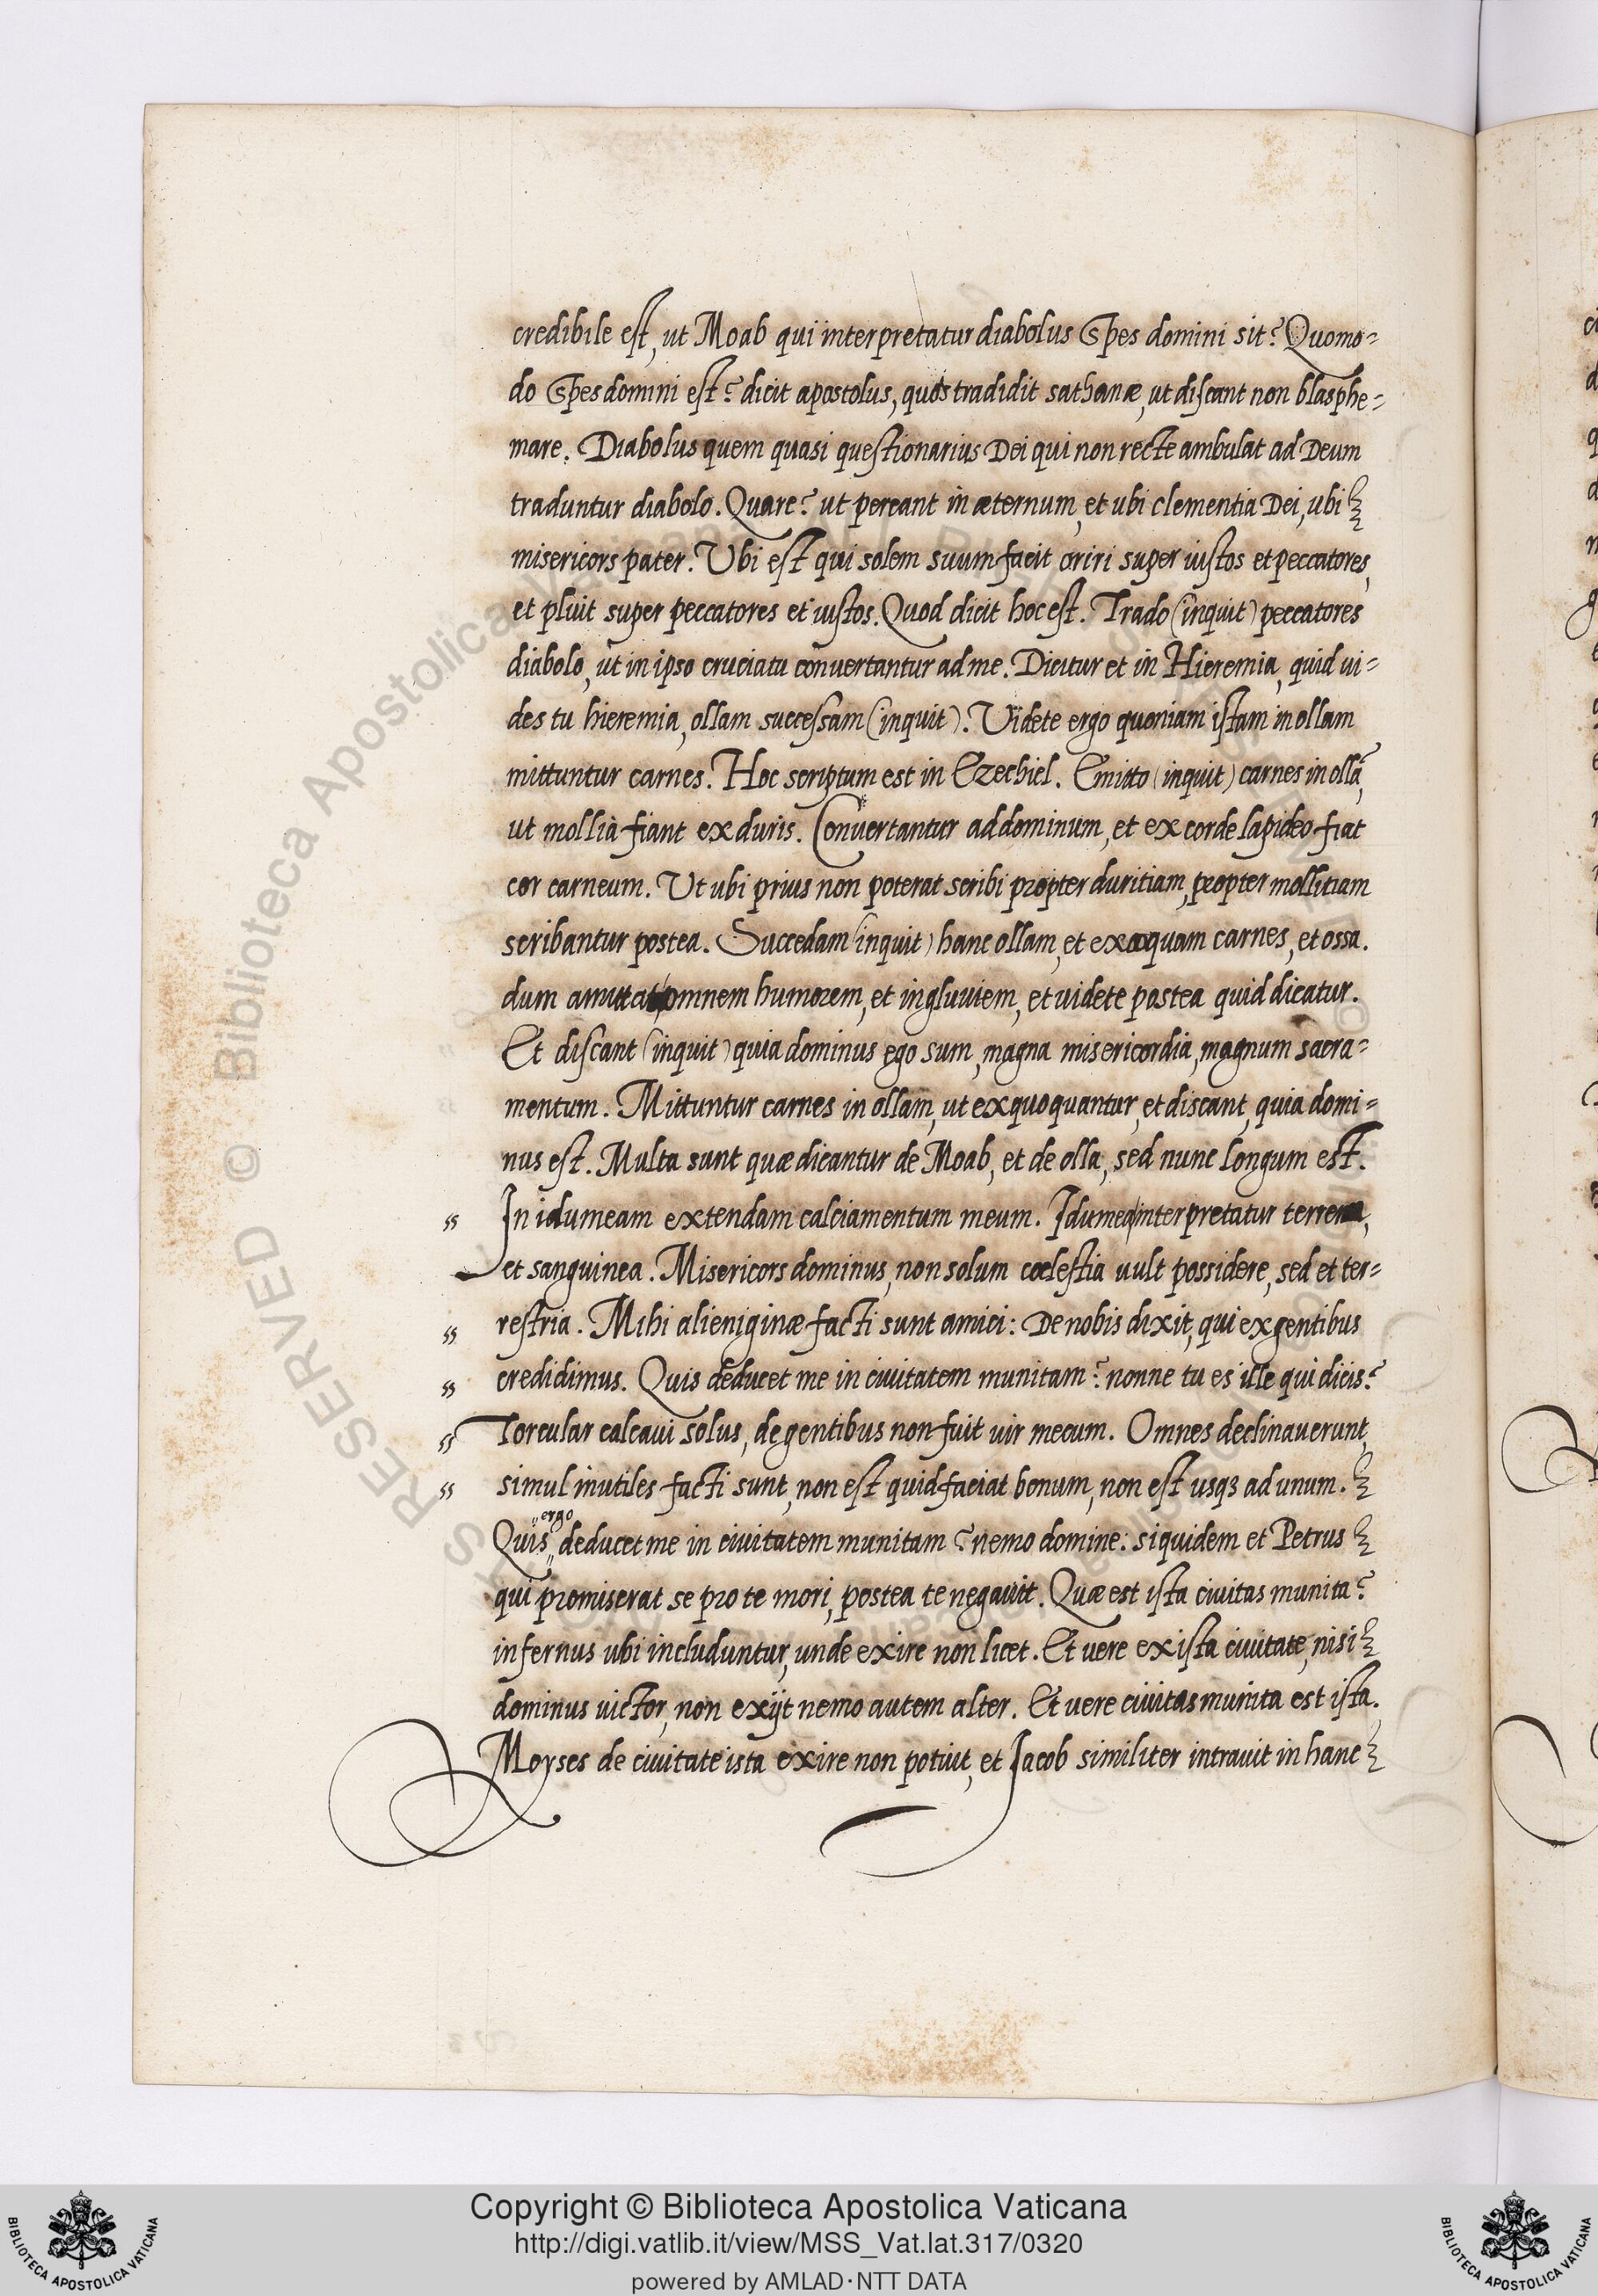 credibile est, ut Moab qui interpretatur diabolus Spes domini sit? Quomo=
do Spes domini est? dicit apostolus, quos tradidit sathanæ, ut discant non blasphe=
mare. Diabolus quem quasi questionarius Dei qui non recte ambulat ad Deum
traduntur diabolo. Quare? ut pereant in æternum, et ubi clementia Dei, ubi
misericors pater. Ubi est qui solem suum facit oriri super iustos et peccatores,
et pluit super peccatores et iustos. Quod dicit hoc est. Trado (inquit) peccatores
diabolo, ut in ipso cruciatu convertantur ad me. Dicitur et in Hieremia, quid ui=
des tu hieremia, ollam successam (inquit). Videte ergo quoniam istam in ollam
mittuntur carnes. Hoc scriptum est in Ezechiel. Emitto (inquit) carnes in ollã,
ut mollia fiant ex duris. Convertantur ad dominum, et ex corde lapideo fiat
cor carneum. Ut ubi prius non poterat scribi propter duritiam, propter mollitiam
scribantur postea. Succedam (inquit) hanc ollam, et excoquam carnes, et ossa.
dum amittat omnem humorem, et ingluuiem, et uidete postea quid dicatur.
Et discant (inquit) quia dominus ego sum, magna misericordia, magnum sacra=
mentum. Mittuntur carnes in ollam, ut exquoquantur, et discant, quia domi=
nus est. Multa sunt quæ dicantur de Moab, et de olla, sed nunc longum est.
" In idumeam extendam calciamentum meum. Idumea interpretatur terrena,
et sanguinea. Misericors dominus, non solum cœlestia uult possidere, sed et ter=
" restria. Mihi alieniginæ facti sunt amici: De nobis dixit, qui ex gentibus
" credidimus. Quis deducet me in ciuitatem munitam? nonne tu es ille qui dicis?
" Torcular calcaui solus, de gentibus non fuit uir mecum. Omnes declinauerunt,
" simul inutiles facti sunt, non est quid faciat bonum, non est usq3 ad unum.
ergo
Quis deducet me in ciuitatem munitam? nemo domine: siquidem et Petrus
qui promiserat se pro te mori, postea te negauit. Quæ est ista ciuitas munita?
infernus ubi includuntur, unde exire non licet. Et uere ex ista ciuitate, nisi
dominus uictor, non exijt nemo autem alter. Et uere ciuitas munita est ista.
Moyses de ciuitate ista exire non potuit, et Jacob similiter intrauit in hanc
Copyright © Biblioteca Apostolica Vaticana
http://digi.vatlib.it/view/MSS_Vat.lat.317/0320
powered by AMLAD·NTT DATA
BIBLIOTECA APOSTOLICA VATICANA
BIBLIOTECA APOSTOLICA VATICANA